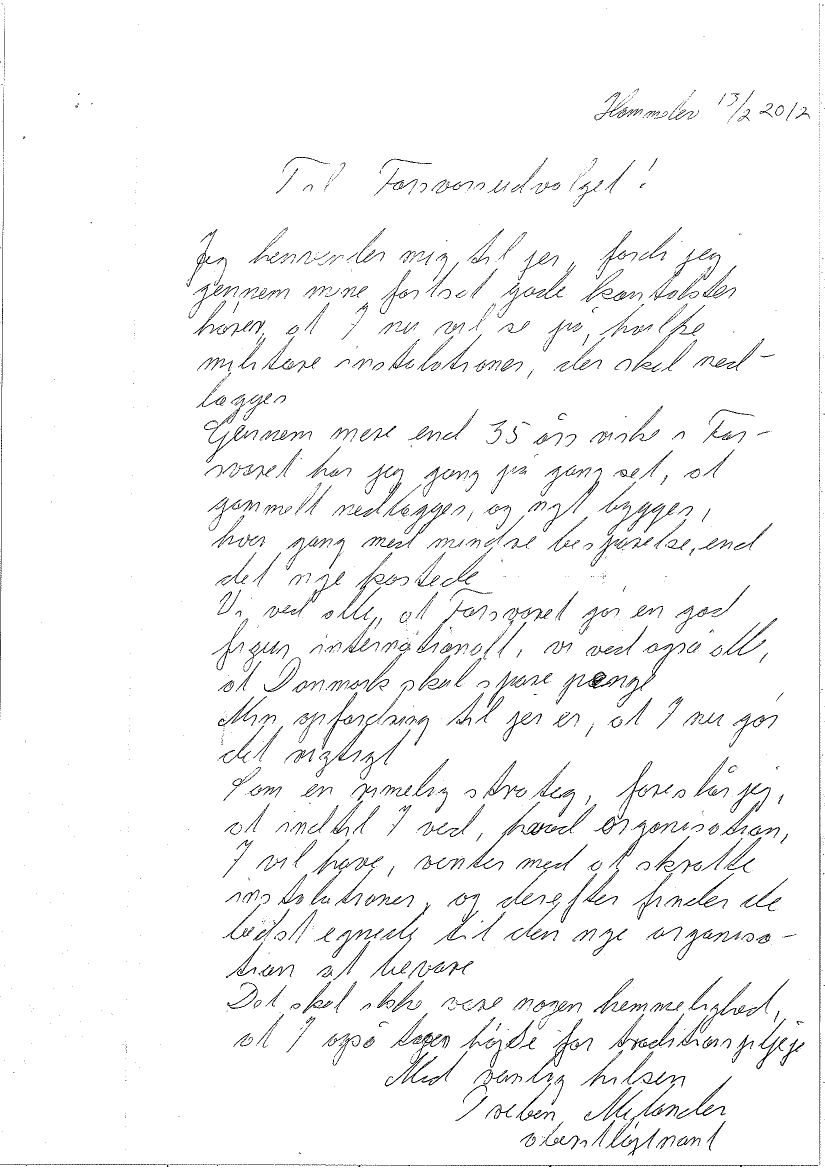 Hammelev 13/2 2012
Til Forsvarsudvalget!
Jeg henvender mig til jer, fordi jeg
gennem mine fortsat gode kontakter
hører, at I nu vil se på, hvilke
militære instalationer, der skal ned-
lægges
Gennem mere end 35 års virke i For-
svaret har jeg gang på gang set, at
gammelt nedlægges, og nyt bygges,
hver gang med mindre besparelse, end
det nye kostede
Vi ved alle, at Forsvaret gør en god
figur internationalt, vi ved også alle,
at Danmark skal spare penge
Min opfordring til jer er, at I nu gør
det rigtigt
Som en rimelig strateg, foreslår jeg,
at indtil I ved, hvad organisation,
I vil have, venter med at skrotte
instalationer, og derefter finder de
bedst egnede til den nye organisa-
tion at bevare
Det skal ikke være nogen hemmelighed,
at I også tager højde for traditionspleje
Med venlig hilsen
Preben Mylander
oberstløjtnant